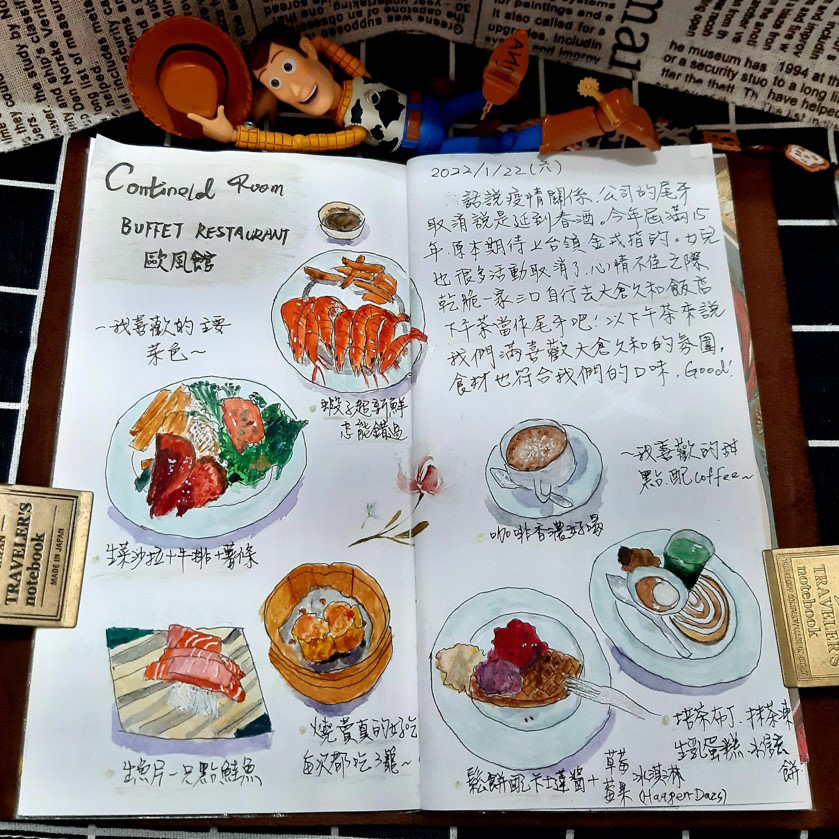 Contineld Room
BUFFET RESTAURANT
歐風館
~我喜歡的主要
菜色~
蝦子超新鮮
志能錯過
生菜沙拉+牛排+薯條
生魚片一只點鮭魚
燒賣真的好吃
每次都吃3籠~
2022/1/22(六)
話說疫情關係,公司的尾牙
取消說是延到春酒。今年屆滿15
年原本期待上台領金戒指的。女兒
也很多活動取消了,心情不佳之際
乾脆一家三口自行去大倉久和飯店
下午茶當作尾牙吧!以下午茶來說
我們滿喜歡大倉久和的氛圍,
食材也符合我們的口味,Good!
~我喜歡的甜
點配coffee~
咖啡香濃好喝
焙茶布丁.抹茶凍
生乳蛋糕
餅
鬆餅配卡士達醬+
草莓
藍果
冰淇淋
(HaagenDazs)
TRAVELER'S
notebook
MADE IN JAPAN
TRAVELER'S
notebook
ANDY
man
the museum has
1994 at
or a security
to a long
the theft. Th
have helped
it also called for
upgrades. Includin